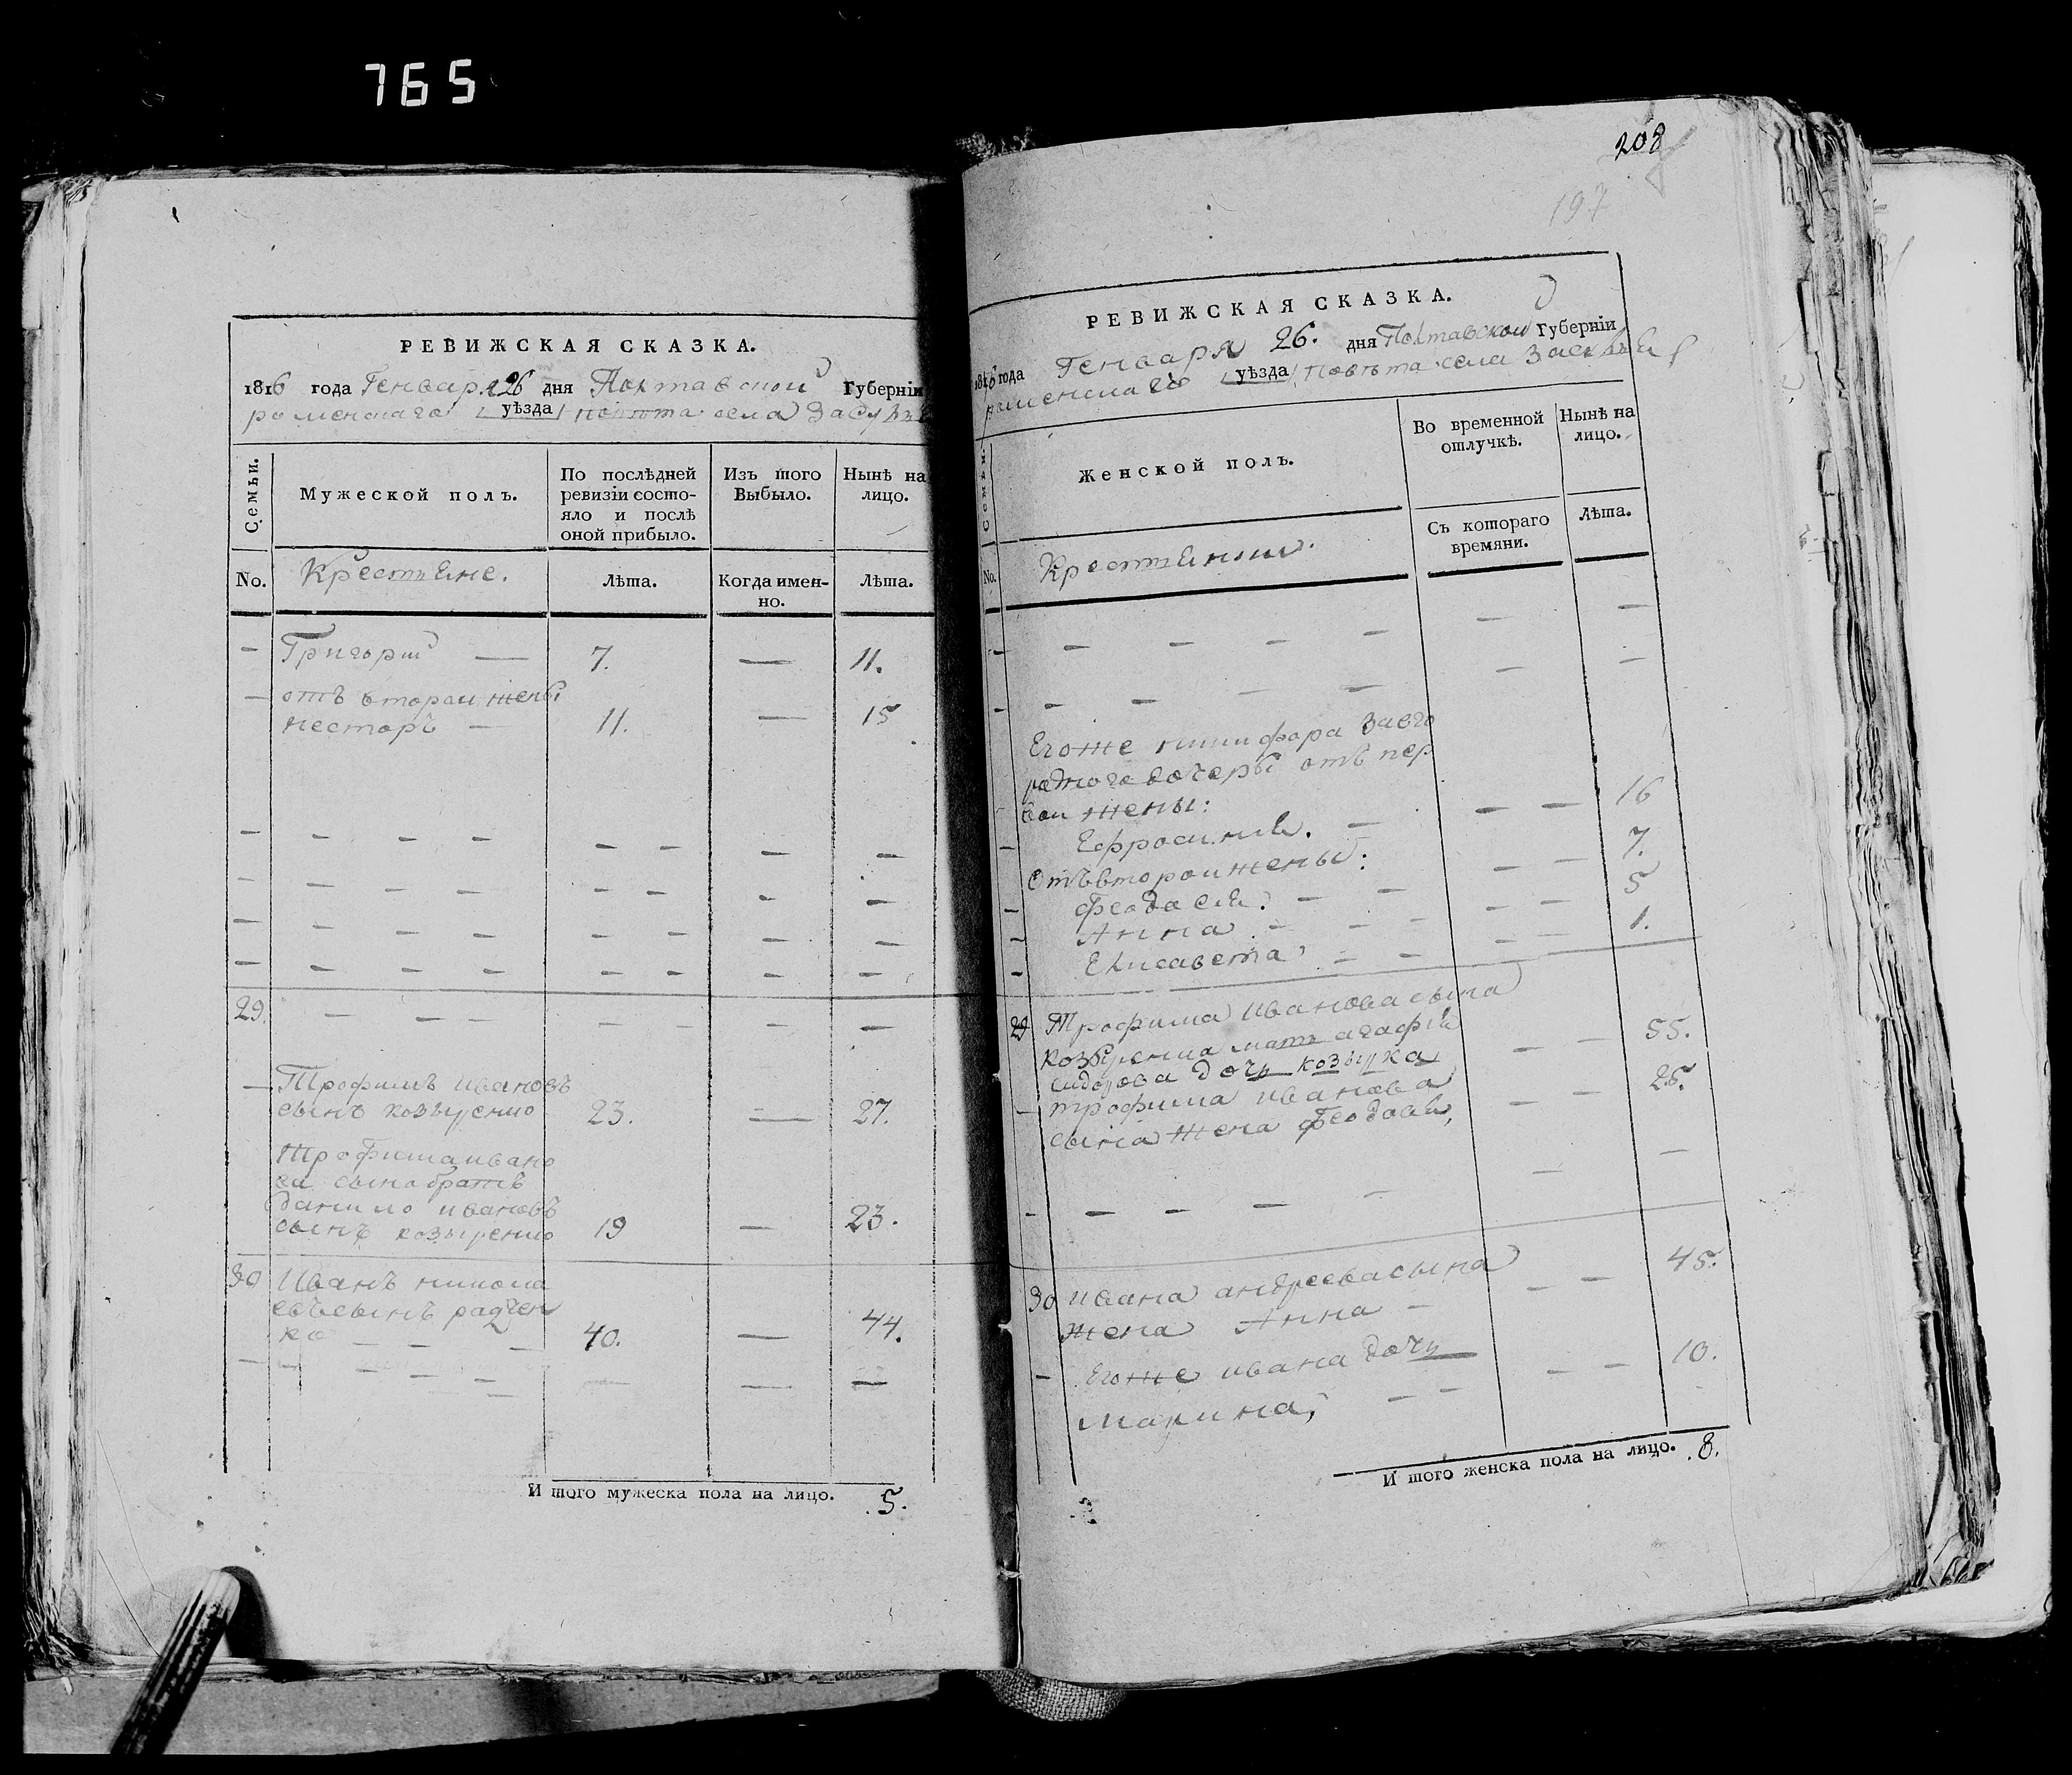 765
РЕВИЖСКАЯ СКАЗКА.
1816 года Генваря 26 дня Полтавской Губерніи
роменскаго уѣзда повѣта села Засулья
Семьи.
Мужеской полъ.
По послѣдней ревизіи состояло и послѣ оной прибыло.
Изъ того Выбыло.
Нынѣ на лицо.
No.
Крестьяне.
Лѣта.
Когда именно.
Лѣта.
— Григорій — 7. — 11.
— отъ второй жены
несторъ — 11. — 15
— — — — — — — —
— — — — — — — —
— — — — — — — —
— — — — — — — —
29. — — — — — — —
— Трофимъ ивановъ
сынъ козыренко 23. — 27.
Трофима ивано
ва сына братъ
данило ивановъ
сынъ козыренко 19 — 23.
30 Иванъ
сынъ радчен
ко — — — 40. — 44.
— — — — — — — —
И того мужеска пола на лицо. 5.
208
197
РЕВИЖСКАЯ СКАЗКА.
1816 года Генваря 26. дня Полтавской Губерніи
роменскаго уѣзда повѣта села Засулья
Семьи.
Женской полъ.
Во временной отлучкѣ.
Нынѣ на лицо.
No.
Крестьянки.
Съ котораго времяни.
Лѣта.
— — — — — — —
— — — — — — —
Егоже никифора
дочеры отъ пер
вой жены:
— Ефросинія. — — — 16
Отъ второй жены:
— феодосія. — — — — 7.
— Анна — — — — — 5
— Елисавета — — — — 1.
29 Трофима иванова сына
козыренка мать агафія
сидорова дочь козырка — — 55.
— трофима иванова
сына жена феодосія, — — 25.
— — — — — — —
30 ивана андреева сына
жена Анна — — — 45.
— Егоже ивана дочь
марина, — — — — 10.
И того женска пола на лицо. 8.